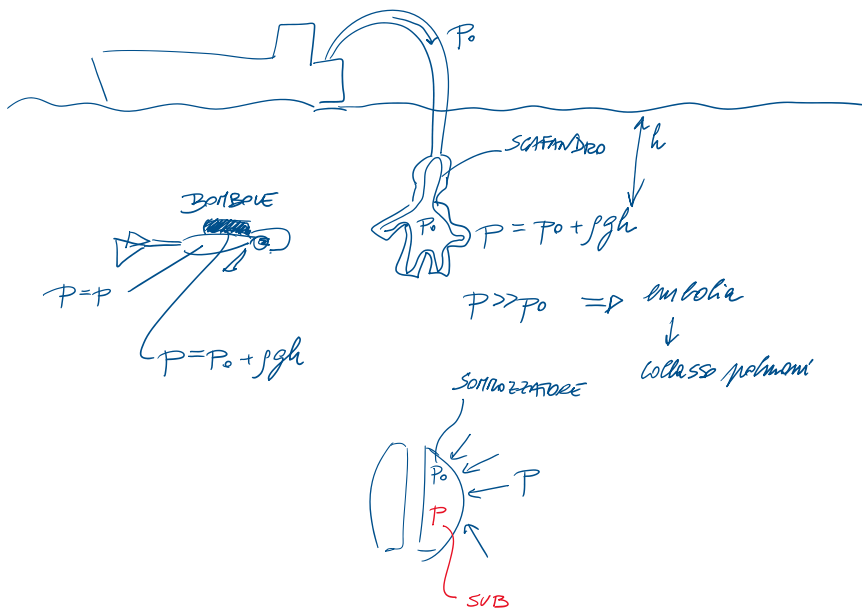 P₀
SCAFANDRO
h
BOMBOLE
P₀
p = p₀ + ρgh
P = P
P >> P₀ ⇒ embolia
↓
collasso polmoni
P = P₀ + ρgh
SOMMOZZATORE
P₀
P
P
SUB